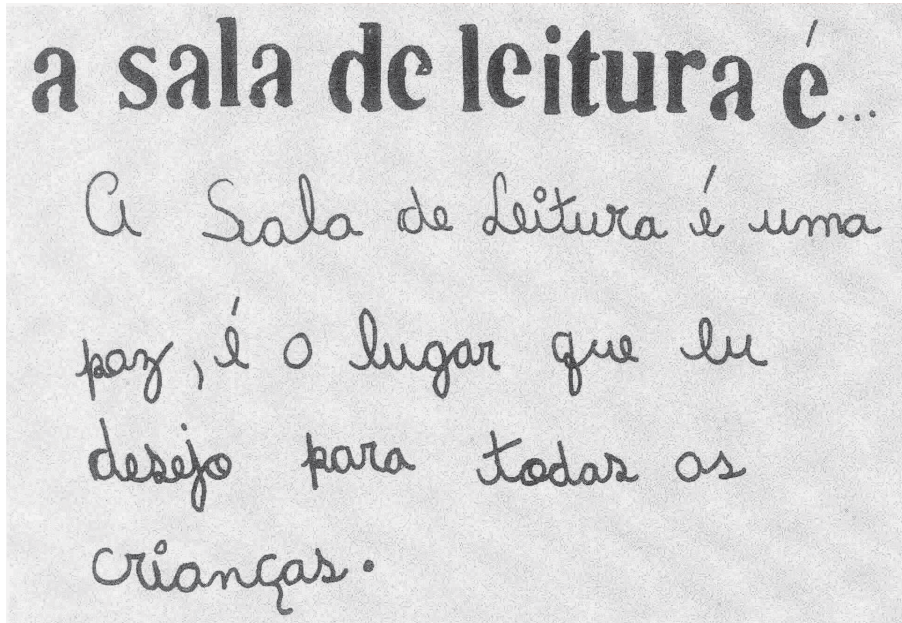 a sala de leitura é...
A Sala de Leitura é uma
paz, é o lugar que eu
desejo para todas as
crianças.